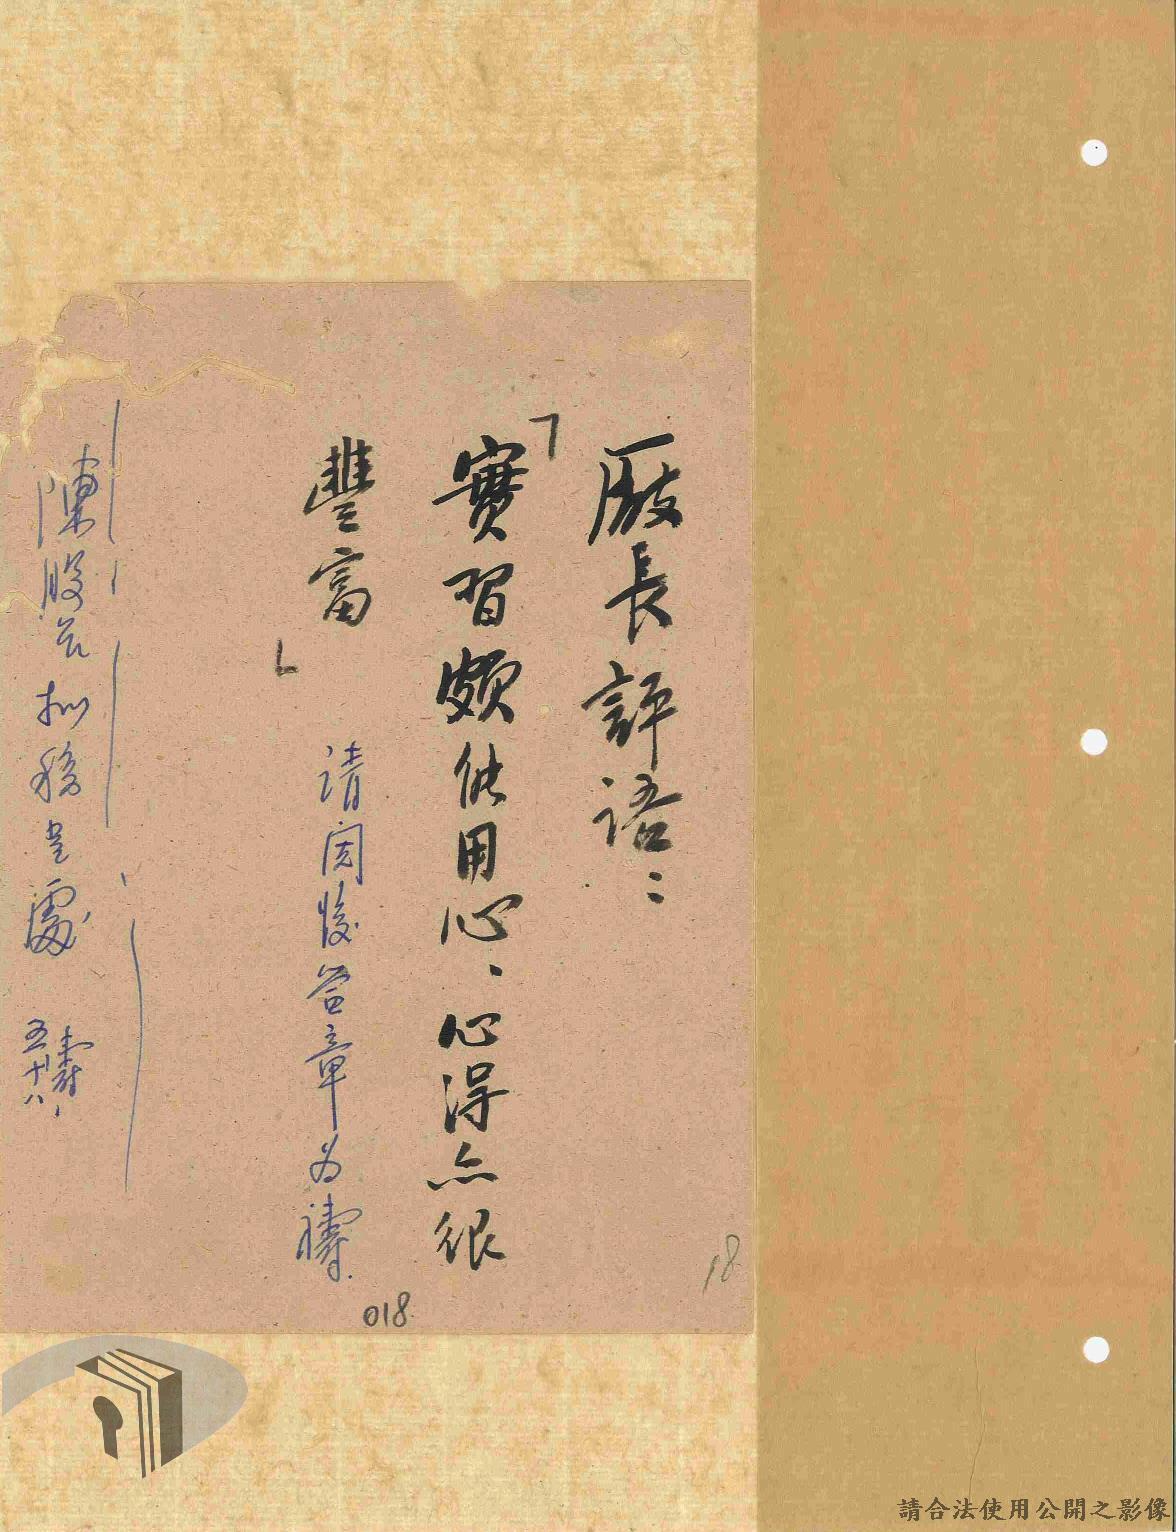 廠長評語：
「實習頗能用心、心得亦很
豐富」
請閱後簽章為禱
陳股長
五十八
018
18
請合法使用公開之影像